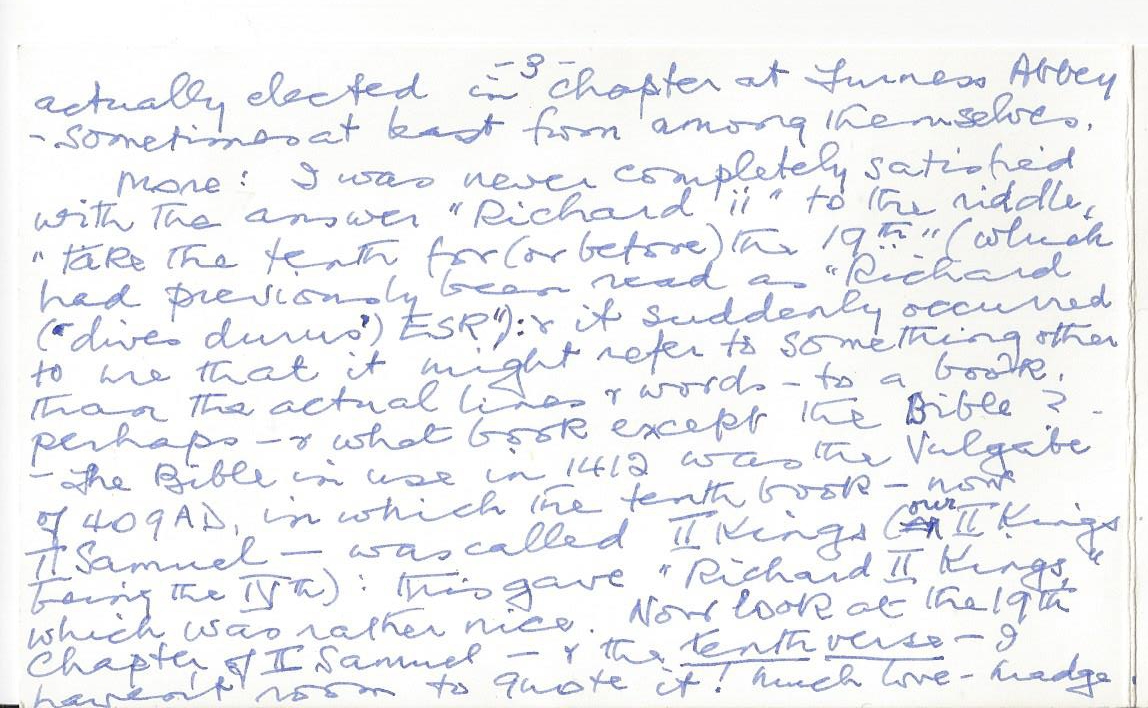 - 3 -
actually elected in chapter at Furness Abbey
- sometimes at least from among themselves.
More: I was never completely satisfied
with the answer "Richard ii" to the riddle,
"take the tenth for (or before) the 19th" (which
had previously been read as "Richard
("dives durus") ESR"): & it suddenly occurred
to me that it might refer to something other
than the actual lines & words - to a book.
perhaps - & what book except the Bible ? -
- The Bible in use in 1412 was the Vulgate
of 409 AD, in which the tenth book - now
II Samuel - was called II Kings (our II Kings
being the IVth) : this gave "Richard II Kings,"
which was rather nice. Now look at the 19th
Chapter of II Samuel - & the tenth verse - I
haven't room to quote it! Much love - Madge.